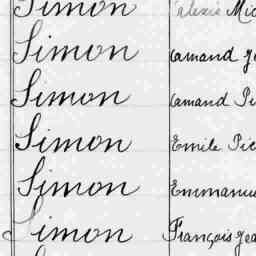 Simon Alexis Mic
Simon Amand Je
Simon Amand Pi
Simon Emile Pie
Simon Emmanue
Simon François Jea